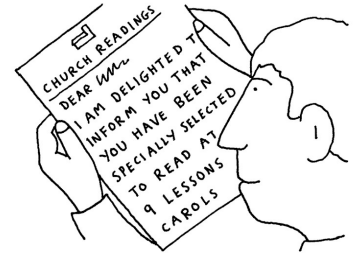 CHURCH READINGS
DEAR
I AM DELIGHTED T
INFORM YOU THAT
YOU HAVE BEEN
SPECIALLY SELECTED
TO READ AT
9 LESSONS
CAROLS